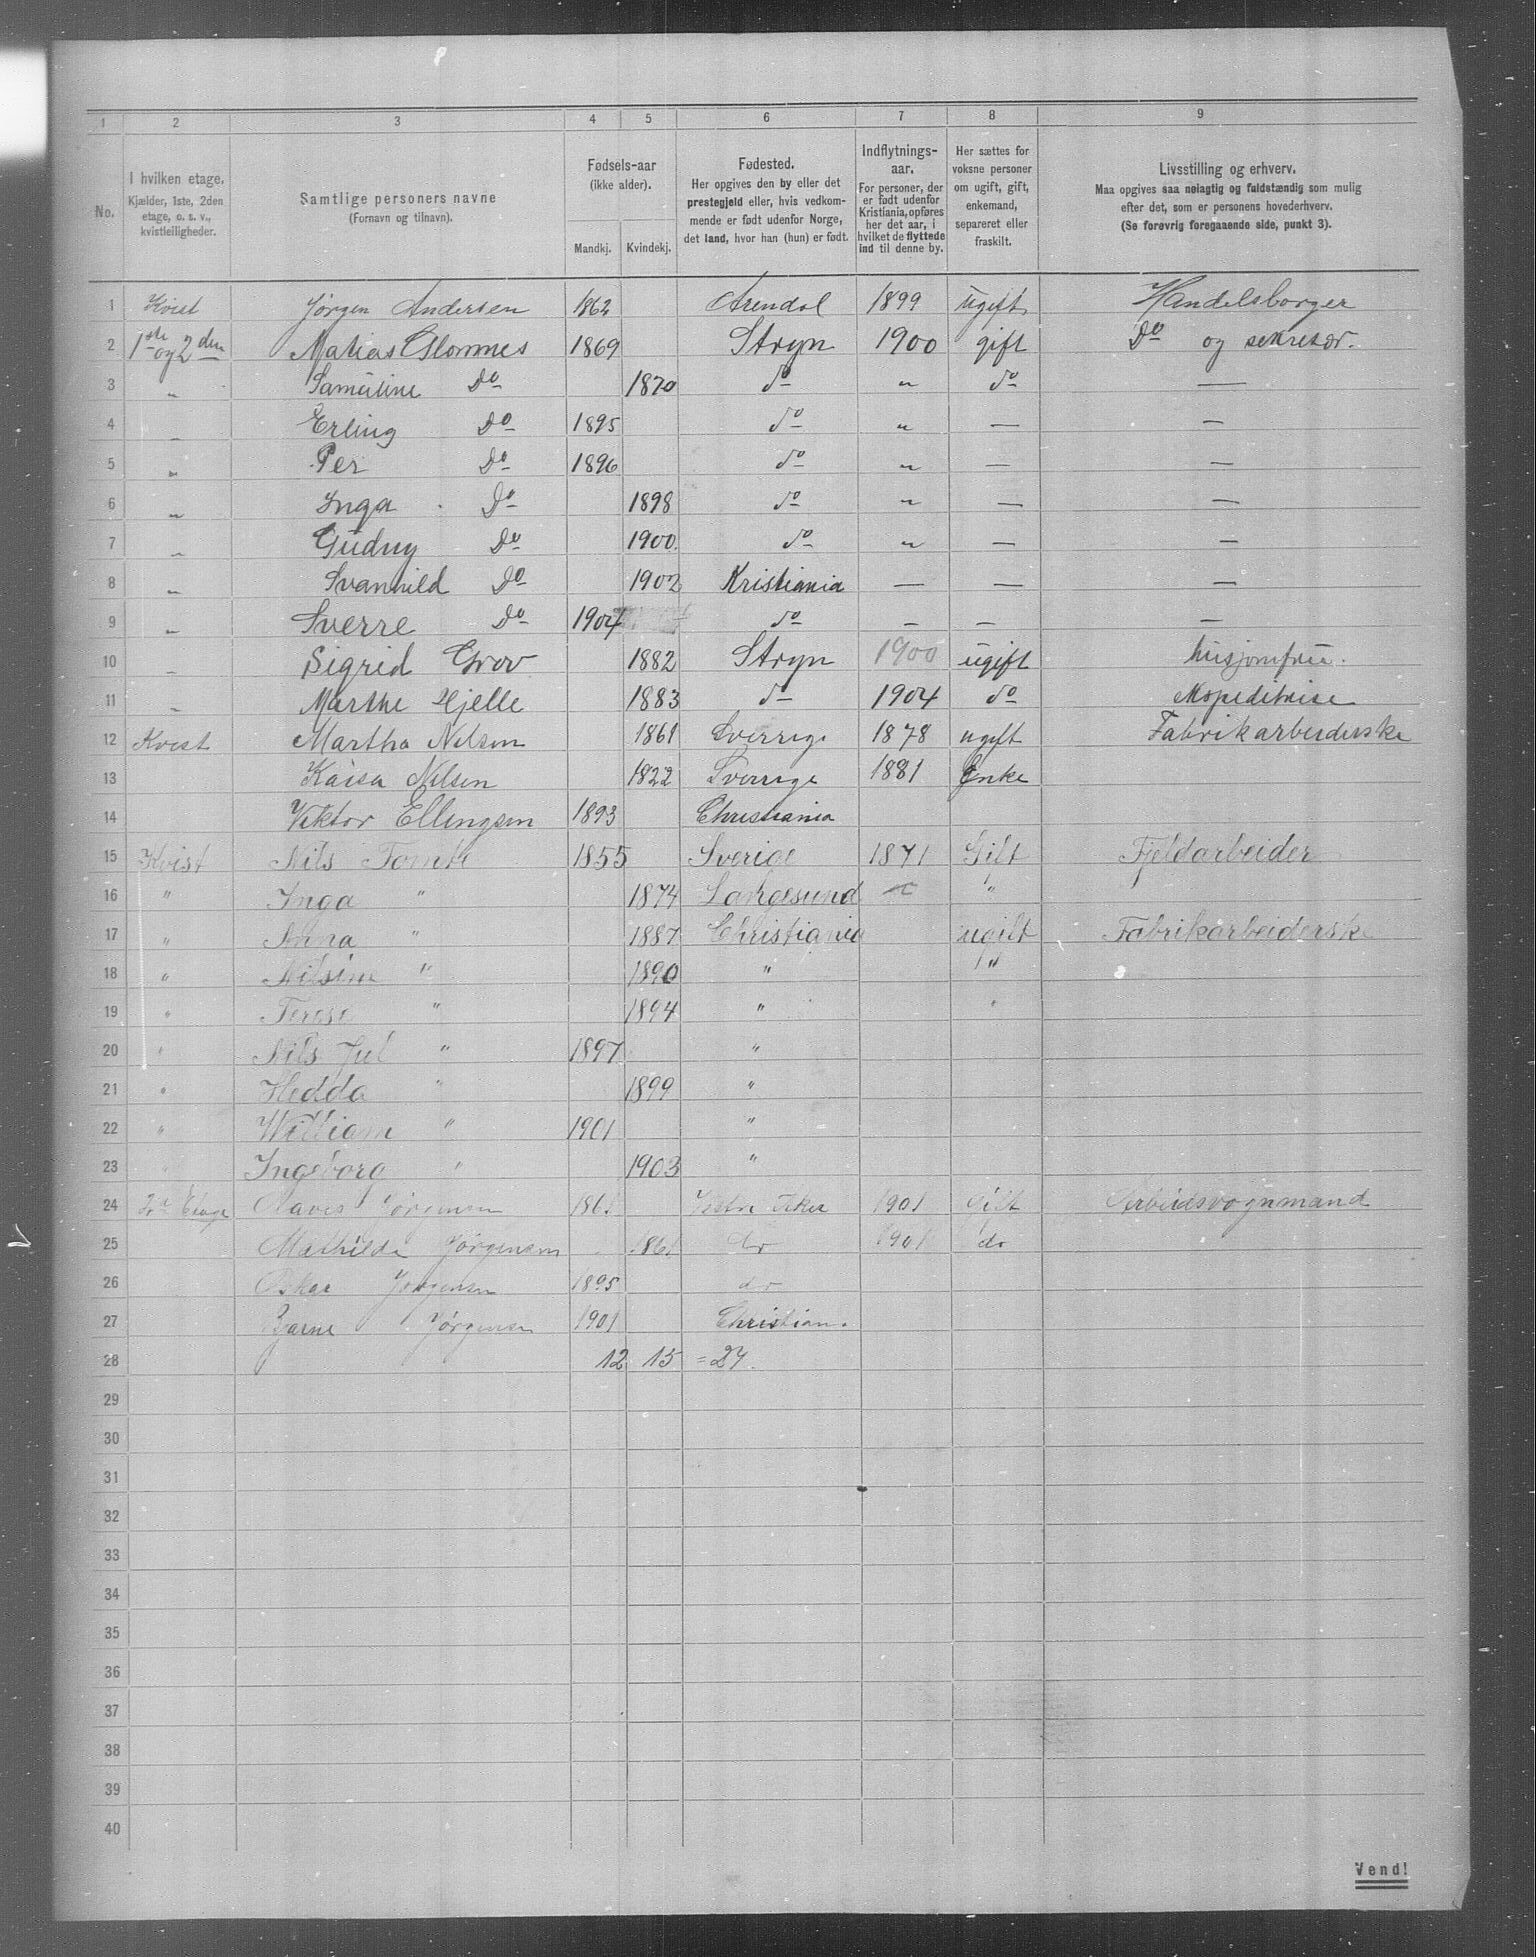 1 2 3 4 5 6 7 8 9
No.
I hvilken etage.
Kjælder, 1ste, 2den
etage, o. s. v.,
kvistleiligheder.
Samtlige personers navne
(Fornavn og tilnavn).
Fødsels-aar
(ikke alder).
Mandkj. Kvindekj.
Fødested.
Her opgives den by eller det
prestegjeld eller, hvis vedkom-
mende er født udenfor Norge,
det land, hvor han (hun) er født.
Indflytnings-
aar.
For personer, der
er født udenfor
Kristiania, opføres
her det aar, i
hvilket de flyttede
ind til denne by.
Her sættes for
voksne personer
om ugift, gift,
enkemand,
separeret eller
fraskilt.
Livsstilling og erhverv.
Maa opgives saa nøiagtig og fuldstændig som mulig
efter det, som er personens hovederhverv.
(Se forøvrig foregaaende side, punkt 3).
1 Kvist Jørgen Andersen 1862 Arendal 1899 ugift Handelsborger
2 1ste og 2den Matias Glomnes 1869 Stryn 1900 gift Do og sekretær.
3 " Samuline Do 1870 do " do —
4 " Erling Do 1895 do " — —
5 " Per Do 1896 do " — —
6 " Inga Do 1898 do " — —
7 " Gudny Do 1900. do " — —
8 " Svanhild Do 1902 Kristiania — — —
9 " Sverre Do 1904 do — — —
10 " Sigrid Grov 1882 Stryn 1900 ugift husjomfru.
11 " Marthe Hjelle 1883 do 1904 do
12 Kvist Martha Nilsen 1861 Sverrige 1878 ugift Fabrikarbeiderske
13 Kaisa Nilsen 1822 Sverrige 1881 Enke
14 Viktor Ellingsen 1893 Christiania
15 Kvist Nils Tomte 1855 Sverige 1871 Gift Fjeldarbeider
16 " Inga " 1874 Langesund "
17 " Anna " 1887 Christiania ugift Fabrikarbeiderske
18 " Nilsine " 1890 " "
19 " Terese " 1894 " "
20 " Nils Jul " 1897 "
21 " Hedda " 1899 "
22 " William " 1901 "
23 " Ingeborg " 1903 "
24 2d Etage Olaves Jørgensen 1861 Vestre Aker 1901 Gift Arbeidsvognmand
25 Mathilde Jørgensen 1861 do 1901 do
26 Oskar Jørgensen 1895 do
27 Bjarne Jørgensen 1901 Christian.
28 12 15 = 27.
29
30
31
32
33
34
35
36
37
38
39
40
Vend!